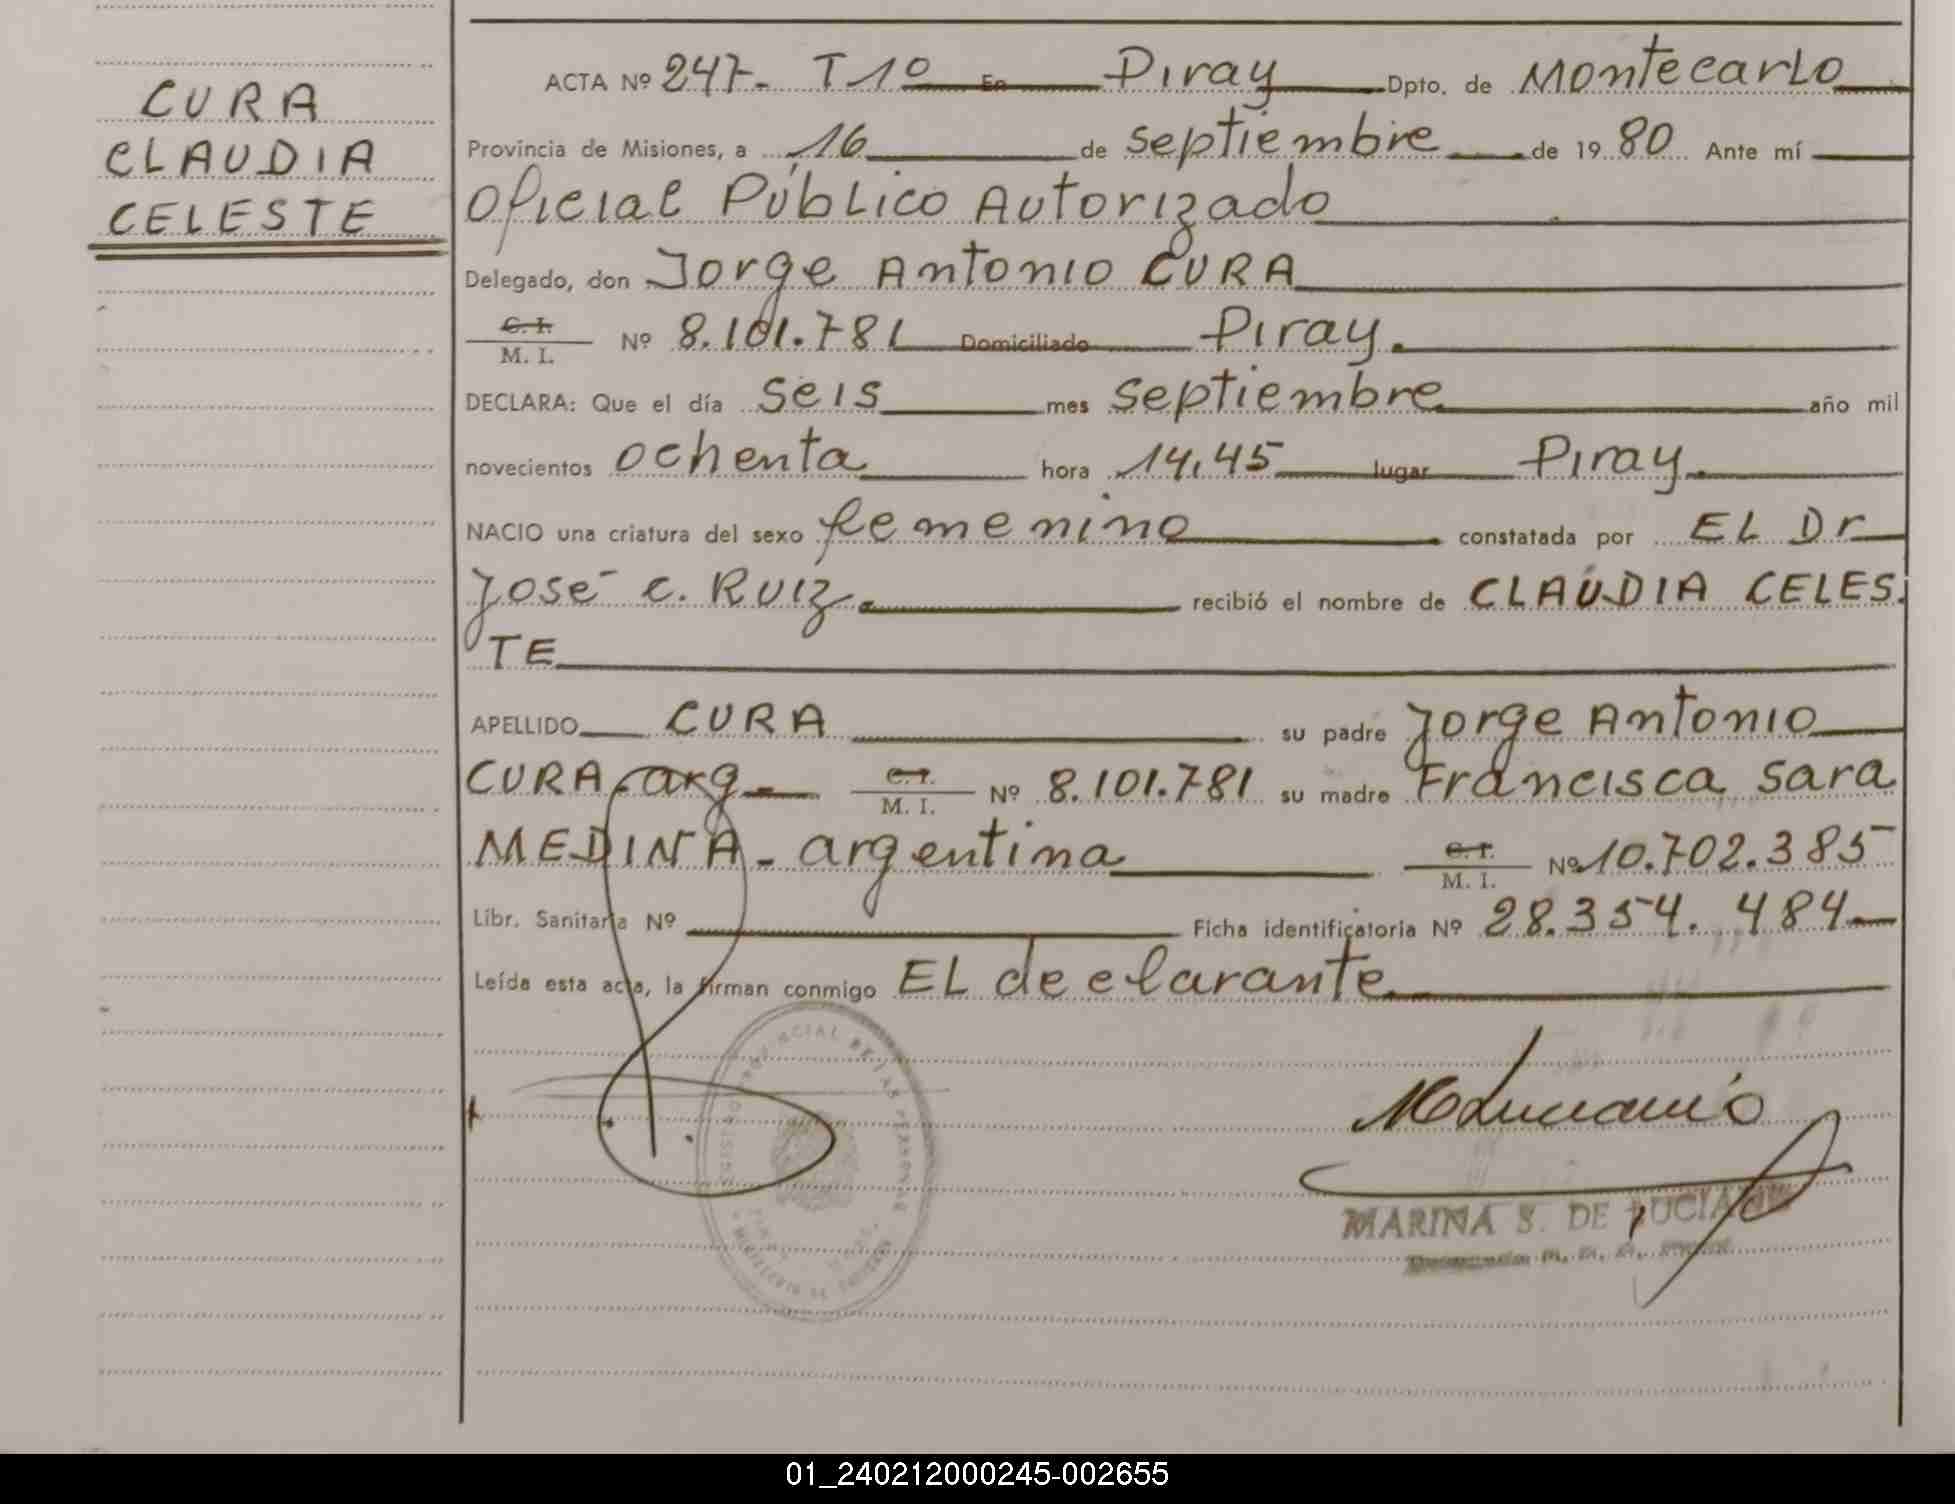 CURA
CLAUDIA
CELESTE
ACTA Nº 247- T 1º En Piray Dpto. de Montecarlo
Provincia de Misiones, a 16 de septiembre de 1980 Ante mí
Oficial Público Autorizado
Delegado, don Jorge Antonio CURA
C. I.
M. I. Nº 8.101.781 Domiciliado Piray.
DECLARA: Que el día seis mes septiembre año mil
novecientos ochenta hora 14,45 lugar Piray.
NACIO una criatura del sexo femenino constatada por EL Dr
José C. Ruiz. recibió el nombre de CLAUDIA CELES.
TE
APELLIDO CURA su padre Jorge Antonio
CURA-arg- C. I.
M. I. Nº 8.101.781 su madre Francisca Sara
MEDINA - argentina C. I.
M. I. Nº 10.702.385
Libr. Sanitaria Nº Ficha identificatoria Nº 28.354.484
Leída esta acta, la firman conmigo EL declarante
PROVINCIAL DE LAS PERSONAS
MARINA S. DE LUCIANO
01_240212000245-002655